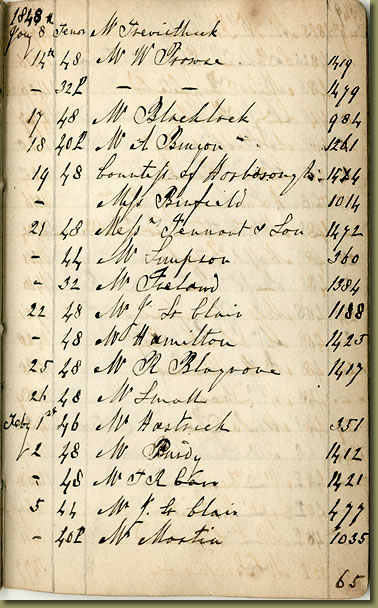 1848
Jany 8 Tenor Mr Trevithick
14th 48 Mr W Prowse 1419
- 32P - - 1479
17 48 Mr Blacklock 984
18 40P Mr A Binyon - 1261
19 48 Countess of Harborough 1484
- Mess Binfield 1014
21 48 Messrs Tennant & Son 1472
- 44 Mr Simpson 360
- 32 Mr Ireland 1384
22 48 Mr J St Clair 1188
- 48 Mr Hamilton 1425
25 48 Mr R Blagrove 1417
26 48 Mr Small
Feby 1st 46 Mr Hastrick 351
2 48 Mr Purdy 1412
- 48 Mr T R 1421
5 44 Mr J St Clair 477
- 40P Mr Martin 1035
65